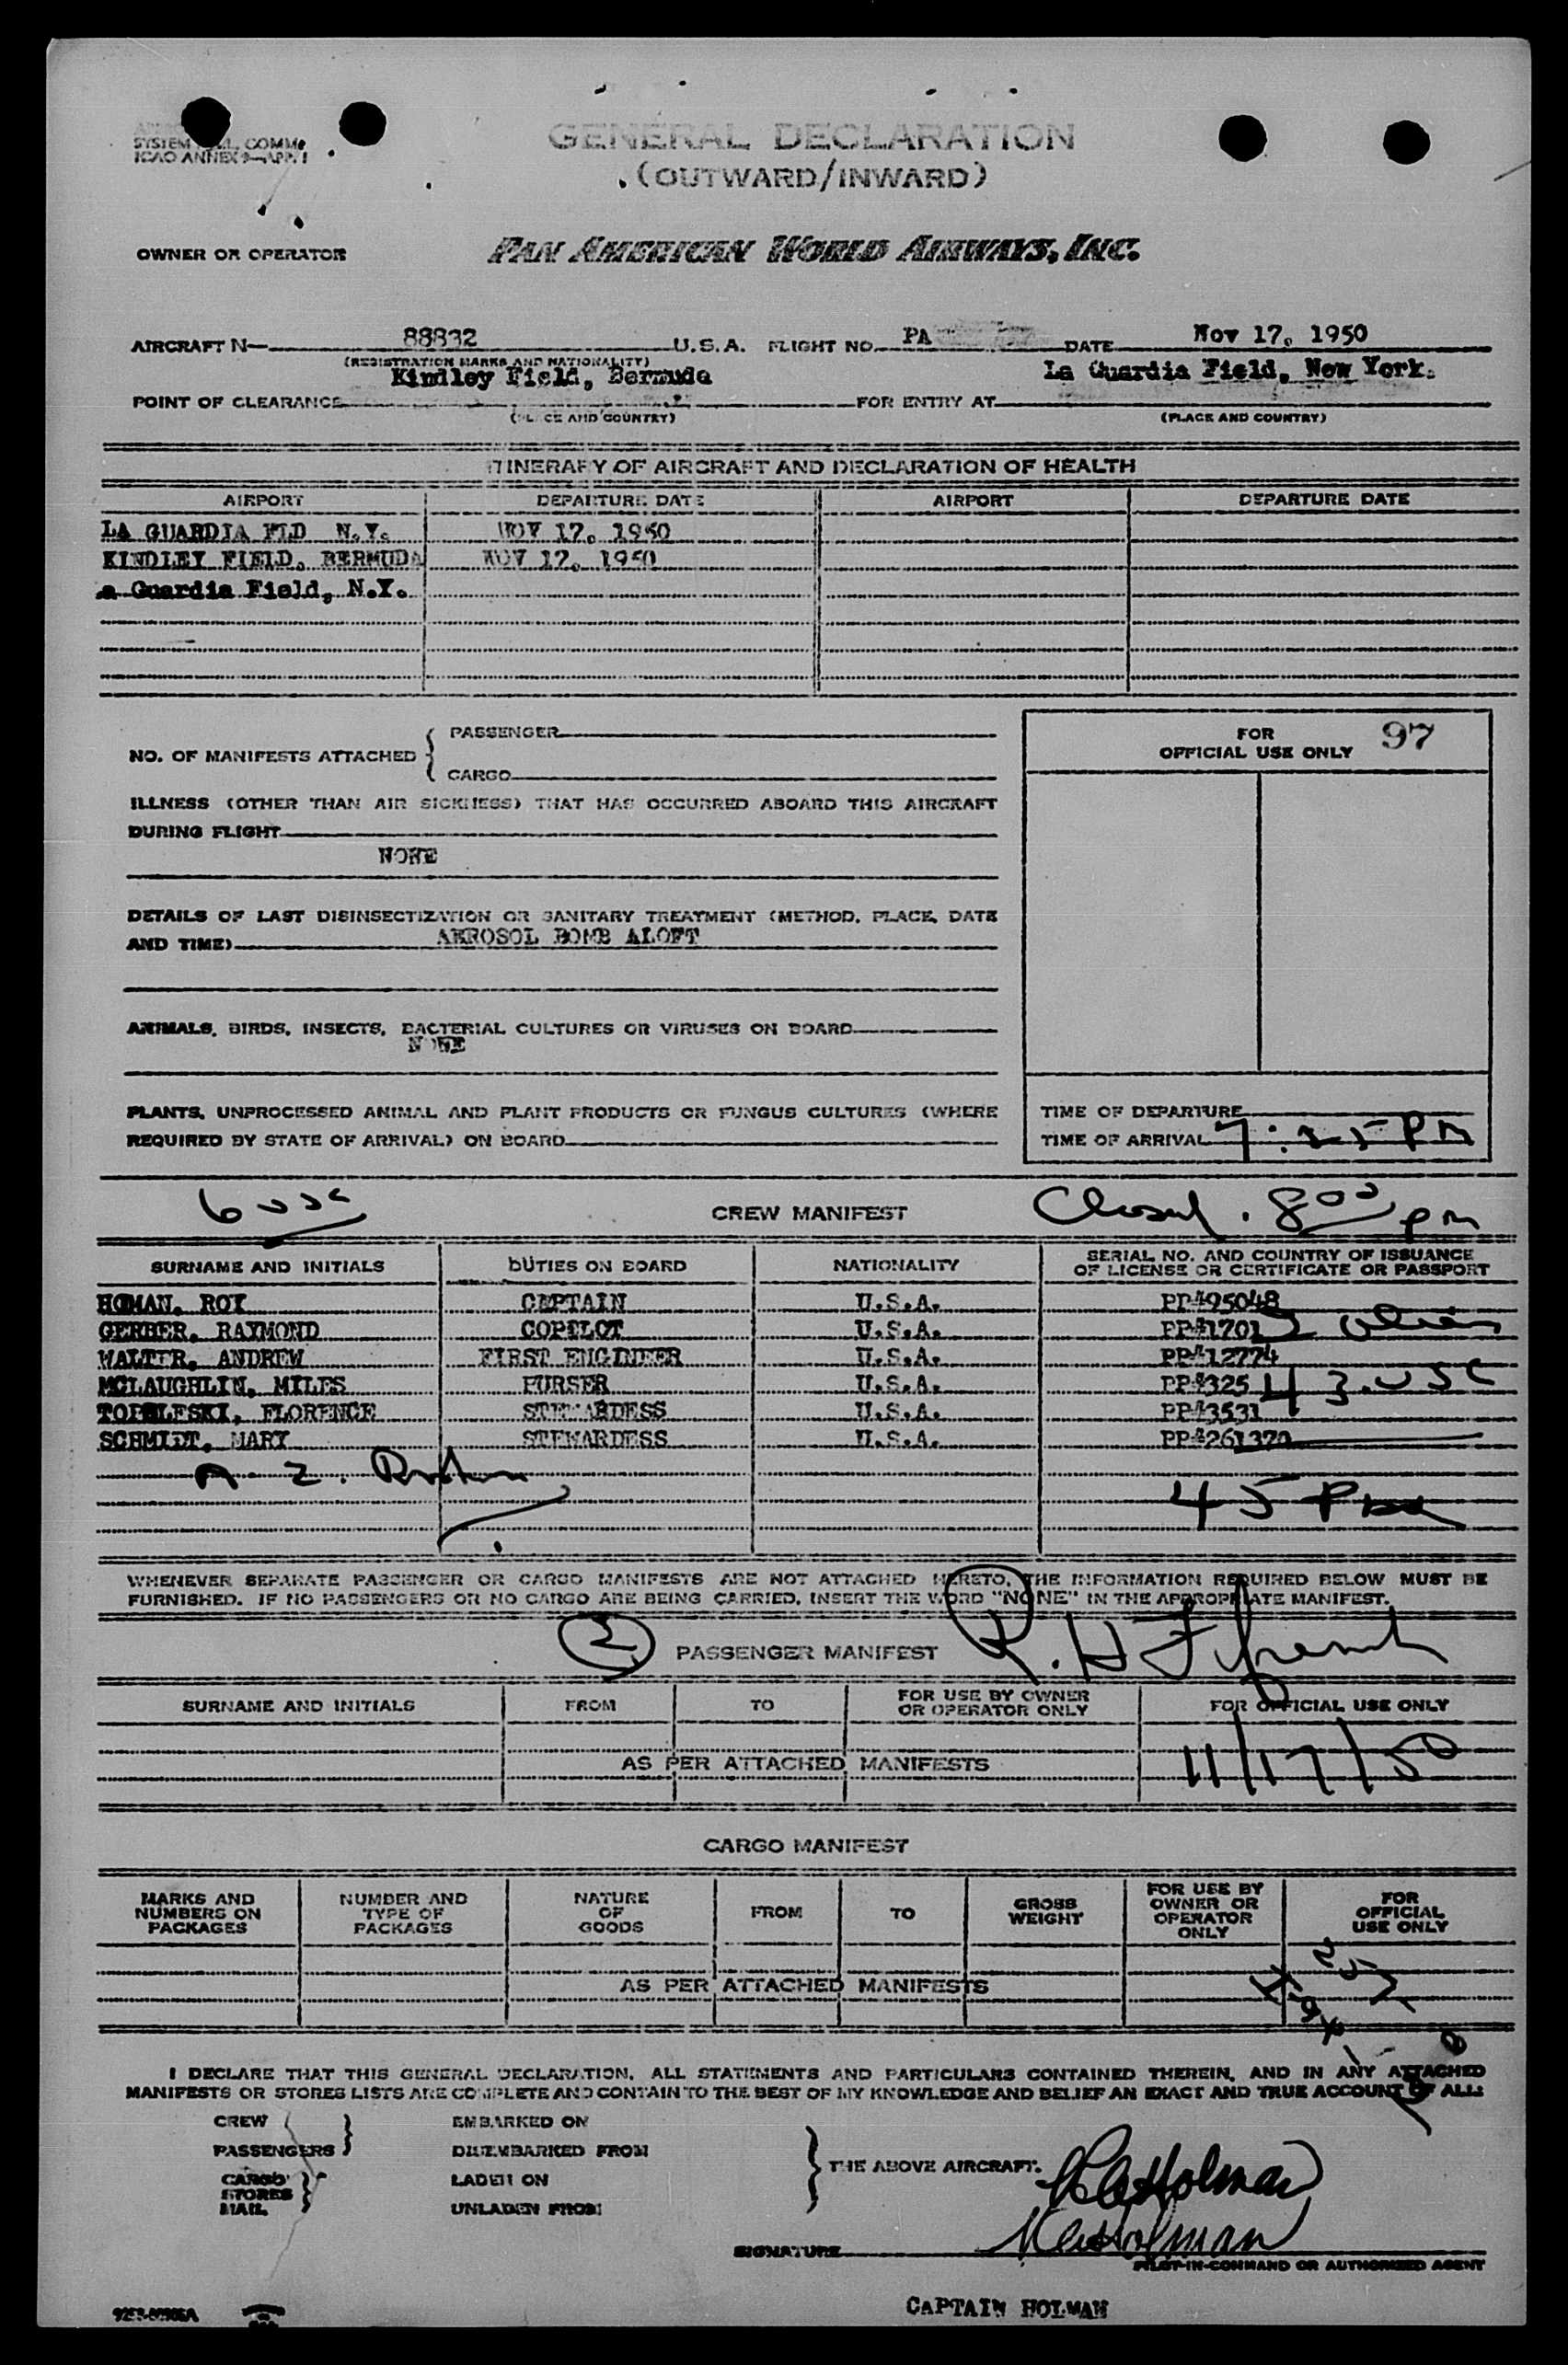 GENERAL DECLARATION
(OUTWARD/INWARD)
SYSTEM COMM.
ICAO ANNEX 9—APP. 1
OWNER OR OPERATOR PAN AMERICAN WORLD AIRWAYS, INC.
AIRCRAFT N— 88832 U.S.A. FLIGHT NO. PA DATE Nov 17, 1950
(REGISTRATION MARKS AND NATIONALITY)
Kindley Field, Bermuda La Guardia Field, New York.
POINT OF CLEARANCE FOR ENTRY AT
(PLACE AND COUNTRY) (PLACE AND COUNTRY)
ITINERARY OF AIRCRAFT AND DECLARATION OF HEALTH
AIRPORT DEPARTURE DATE AIRPORT DEPARTURE DATE
LA GUARDIA FLD N.Y. NOV 17, 1950
KINDLEY FIELD, BERMUDA NOV 17, 1950
a Guardia Field, N.Y.
NO. OF MANIFESTS ATTACHED { PASSENGER
CARGO
FOR OFFICIAL USE ONLY 97
ILLNESS (OTHER THAN AIR SICKNESS) THAT HAS OCCURRED ABOARD THIS AIRCRAFT
DURING FLIGHT
NONE
DETAILS OF LAST DISINSECTIZATION OR SANITARY TREATMENT (METHOD, PLACE, DATE
AND TIME) AEROSOL BOMB ALOFT
ANIMALS, BIRDS, INSECTS, BACTERIAL CULTURES OR VIRUSES ON BOARD
NONE
PLANTS, UNPROCESSED ANIMAL AND PLANT PRODUCTS OR FUNGUS CULTURES (WHERE
REQUIRED BY STATE OF ARRIVAL) ON BOARD
TIME OF DEPARTURE
TIME OF ARRIVAL 7:25 PM
6 usc CREW MANIFEST Closed. 8 00 pm
SURNAME AND INITIALS DUTIES ON BOARD NATIONALITY SERIAL NO. AND COUNTRY OF ISSUANCE
OF LICENSE OR CERTIFICATE OR PASSPORT
HOMAN, ROY CEPTAIN U.S.A. PP#95048
GERBER, RAYMOND COPILOT U.S.A. PP#1701 2 aliens
WALTER, ANDREW FIRST ENGINEER U.S.A. PP#12774
MCLAUGHLIN, MILES PURSER U.S.A. PP#325 43.USC
TOPOLESKI, FLORENCE STEWARDESS U.S.A. PP#3531
SCHMIDT, MARY STEWARDESS U.S.A. PP#261370
A. Z.
45 Pax
WHENEVER SEPARATE PASSENGER OR CARGO MANIFESTS ARE NOT ATTACHED HERETO, THE INFORMATION REQUIRED BELOW MUST BE
FURNISHED. IF NO PASSENGERS OR NO CARGO ARE BEING CARRIED, INSERT THE WORD "NONE" IN THE APPROPRIATE MANIFEST.
2 PASSENGER MANIFEST R. H.
SURNAME AND INITIALS FROM TO FOR USE BY OWNER OR OPERATOR ONLY FOR OFFICIAL USE ONLY
AS PER ATTACHED MANIFESTS 11/17/50
CARGO MANIFEST
MARKS AND NUMBERS ON PACKAGES NUMBER AND TYPE OF PACKAGES NATURE OF GOODS FROM TO GROSS WEIGHT FOR USE BY OWNER OR OPERATOR ONLY FOR OFFICIAL USE ONLY
AS PER ATTACHED MANIFESTS
I DECLARE THAT THIS GENERAL DECLARATION, ALL STATEMENTS AND PARTICULARS CONTAINED THEREIN, AND IN ANY ATTACHED
MANIFESTS OR STORES LISTS ARE COMPLETE AND CONTAIN TO THE BEST OF MY KNOWLEDGE AND BELIEF AN EXACT AND TRUE ACCOUNT OF ALL:
CREW EMBARKED ON
PASSENGERS DISEMBARKED FROM
THE ABOVE AIRCRAFT.
CARGO LADEN ON
STORES
MAIL UNLADEN FROM
Holman
Holman
SIGNATURE
PILOT-IN-COMMAND OR AUTHORIZED AGENT
CAPTAIN HOLMAN